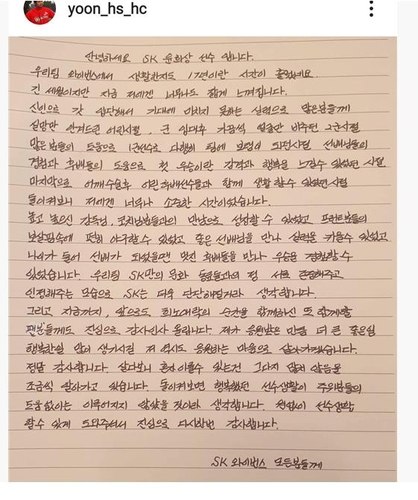 yoon_hs_hc
안녕하세요 SK 윤희상 선수 입니다.
우리팀 와이번스에서 생활한지도 17년이란 시간이 흘렀네요
긴 세월이지만 지금 저에겐 너무나도 짧게 느껴집니다.
신인으로 갓 입단해서 기대에 미치지 못하는 실력으로 많은분들께
실망만 안겨드린 어린시절, 군 입대후 가끔씩 얼굴만 비추던 2군시절
많은분들의 도움으로 1군선수로 다행히 팀에 보탬이 되던시절 선배님들의
경험과 후배들의 도움으로 첫 우승이란 감격과 행복을 느낄수 있었던 시절
마지막으로 어깨수술후 어린 후배선수들과 함께 생활 할수 있었던시절
돌이켜보니 저에겐 너무나 소중한 시간이었습니다.
좋은 감독님, 코치님분들과의 만남으로 성장할 수 있었고 프런트분들의
보살핌속에 편히 야구할수 있었고 좋은 선배님을 만나 실력을 키울수 있었고
나이가 들어 선배가 되었을땐 멋진 후배들을 만나 우승을 경험할 수
있었습니다. 우리팀 SK만의 문화 동료들과의 정 서로 존중해주고
인정해주는 모습으로 SK는 더욱 단단해질거라 생각합니다.
그리고 지금까지, 앞으로도 희노애락의 순간을 함께하신 또 함께할
팬분들께도 진심으로 감사인사 올립니다. 제가 응원받은 만큼 더 큰 좋은일
행복한일 많이 생기시길 저 역시도 응원하는 마음으로 살아가겠습니다.
정말 감사합니다. 살다보니 혼자이룰수 있는건 그다지 많지 않음을
조금씩 알아가고 있습니다. 돌이켜보면 행복했던 선수생활이 주위분들의
도움없이는 이루어지지 않았을 것이라 생각합니다. 원없이 선수생활
할수 있게 도와주셔서 진심으로 다시한번 감사합니다.
SK 와이번스 모든분들께